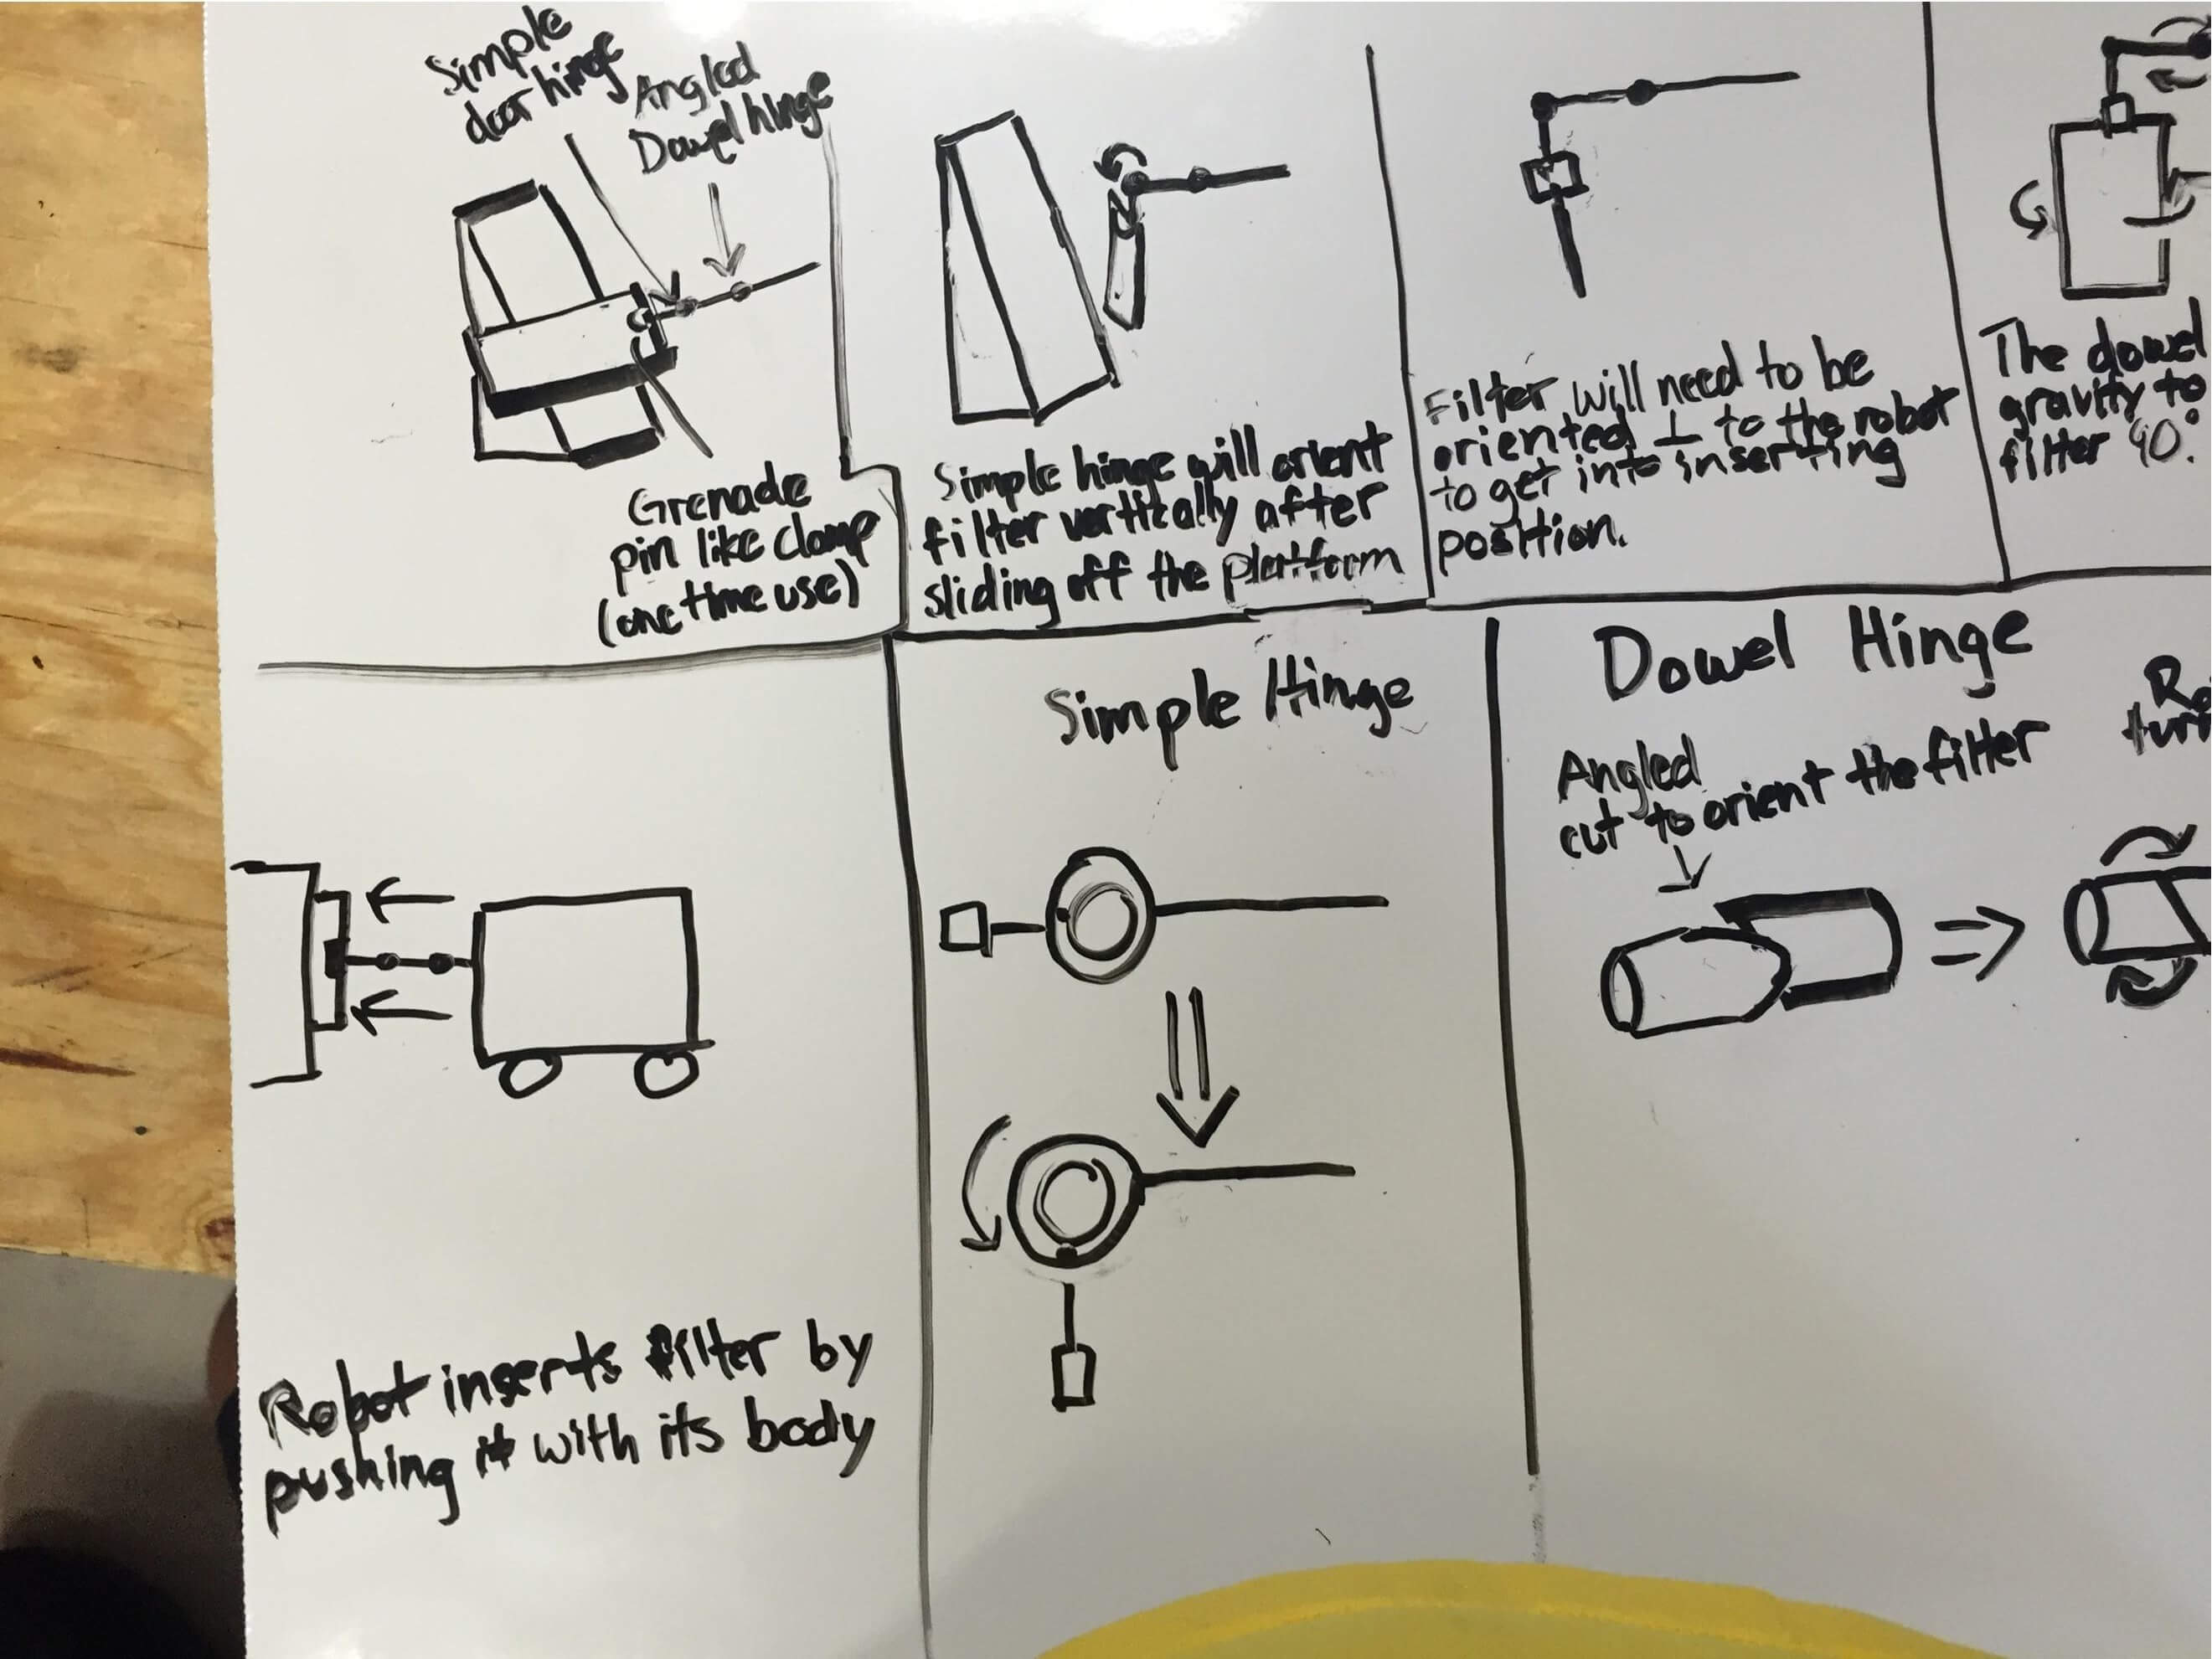 Simple
door hinge
Angled
Dowel hinge
Grenade
pin like clamp
(one time use)
Simple hinge will orient
filter vertically after
sliding off the platform
Filter will need to be
oriented ⊥ to the robot
to get into inserting
position.
The dowel
gravity to
filter 90°.
Robot inserts filter by
pushing it with its body
Simple Hinge
Dowel Hinge
Angled
cut to orient the filter